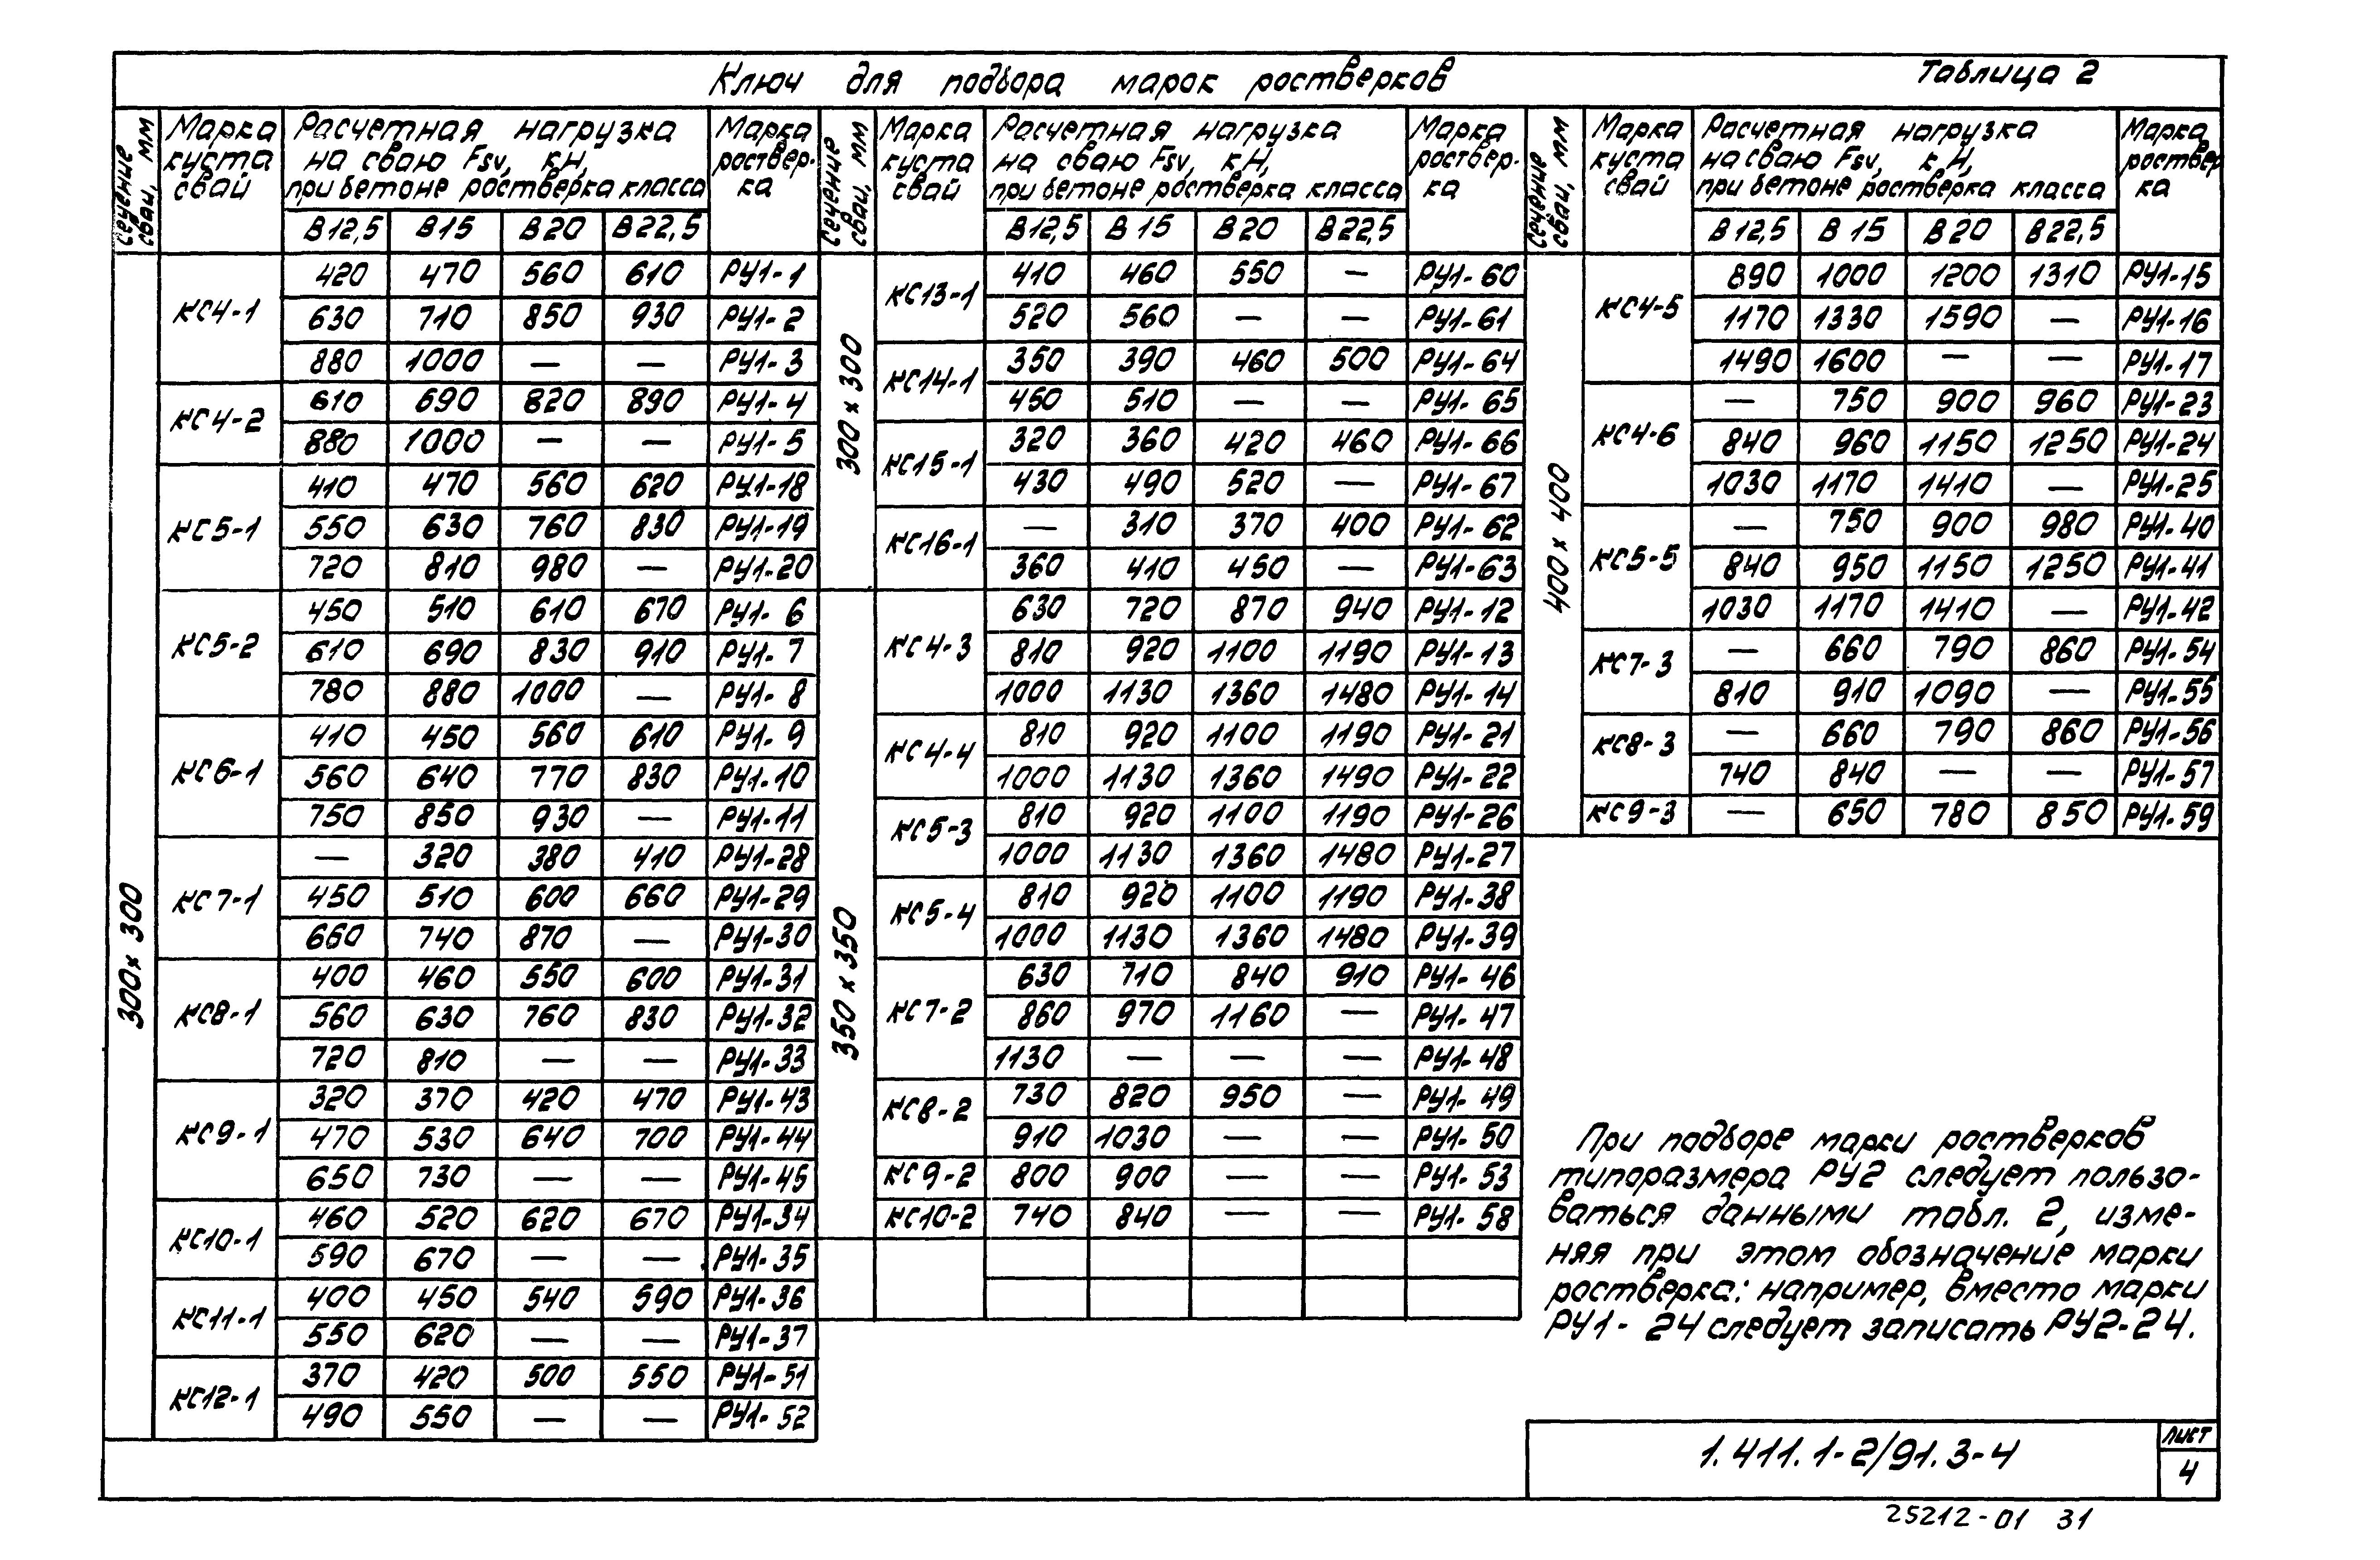 Ключ для подбора марок ростверков
Таблица 2
Сечение сваи, мм | Марка куста свай | Расчетная нагрузка на сваю Fsv, кН, при бетоне ростверка класса | Марка роствер-ка
В12,5 | В15 | В20 | В22,5
300×300
КС4-1
420 | 470 | 560 | 610 | РУ1-1
630 | 710 | 850 | 930 | РУ1-2
880 | 1000 | — | — | РУ1-3
КС4-2
610 | 690 | 820 | 890 | РУ1-4
880 | 1000 | — | — | РУ1-5
КС5-1
410 | 470 | 560 | 620 | РУ1-18
550 | 630 | 760 | 830 | РУ1-19
720 | 810 | 980 | — | РУ1-20
КС5-2
450 | 510 | 610 | 670 | РУ1-6
610 | 690 | 830 | 910 | РУ1-7
780 | 880 | 1000 | — | РУ1-8
КС6-1
410 | 450 | 560 | 610 | РУ1-9
560 | 640 | 770 | 830 | РУ1-10
750 | 850 | 930 | — | РУ1-11
КС7-1
— | 320 | 380 | 410 | РУ1-28
450 | 510 | 600 | 660 | РУ1-29
660 | 740 | 870 | — | РУ1-30
КС8-1
400 | 460 | 550 | 600 | РУ1-31
560 | 630 | 760 | 830 | РУ1-32
720 | 810 | — | — | РУ1-33
КС9-1
320 | 370 | 420 | 470 | РУ1-43
470 | 530 | 640 | 700 | РУ1-44
650 | 730 | — | — | РУ1-45
КС10-1
460 | 520 | 620 | 670 | РУ1-34
590 | 670 | — | — | РУ1-35
КС11-1
400 | 450 | 540 | 590 | РУ1-36
550 | 620 | — | — | РУ1-37
КС12-1
370 | 420 | 500 | 550 | РУ1-51
490 | 550 | — | — | РУ1-52
Сечение сваи, мм | Марка куста свай | Расчетная нагрузка на сваю Fsv, кН, при бетоне ростверка класса | Марка роствер-ка
В12,5 | В15 | В20 | В22,5
300×300
КС13-1
410 | 460 | 550 | — | РУ1-60
520 | 560 | — | — | РУ1-61
КС14-1
350 | 390 | 460 | 500 | РУ1-64
450 | 510 | — | — | РУ1-65
КС15-1
320 | 360 | 420 | 460 | РУ1-66
430 | 490 | 520 | — | РУ1-67
КС16-1
— | 310 | 370 | 400 | РУ1-62
360 | 410 | 450 | — | РУ1-63
350×350
КС4-3
630 | 720 | 870 | 940 | РУ1-12
810 | 920 | 1100 | 1190 | РУ1-13
1000 | 1130 | 1360 | 1480 | РУ1-14
КС4-4
810 | 920 | 1100 | 1190 | РУ1-21
1000 | 1130 | 1360 | 1490 | РУ1-22
КС5-3
810 | 920 | 1100 | 1190 | РУ1-26
1000 | 1130 | 1360 | 1480 | РУ1-27
КС5-4
810 | 920 | 1100 | 1190 | РУ1-38
1000 | 1130 | 1360 | 1480 | РУ1-39
КС7-2
630 | 710 | 840 | 910 | РУ1-46
860 | 970 | 1160 | — | РУ1-47
1130 | — | — | — | РУ1-48
КС8-2
730 | 820 | 950 | — | РУ1-49
910 | 1030 | — | — | РУ1-50
КС9-2
800 | 900 | — | — | РУ1-53
КС10-2
740 | 840 | — | — | РУ1-58
Сечение сваи, мм | Марка куста свай | Расчетная нагрузка на сваю Fsv, кН, при бетоне ростверка класса | Марка роствер ка
В12,5 | В15 | В20 | В22,5
400×400
КС4-5
890 | 1000 | 1200 | 1310 | РУ1-15
1170 | 1330 | 1590 | — | РУ1-16
1490 | 1600 | — | — | РУ1-17
КС4-6
— | 750 | 900 | 960 | РУ1-23
840 | 960 | 1150 | 1250 | РУ1-24
1030 | 1170 | 1410 | — | РУ1-25
КС5-5
— | 750 | 900 | 980 | РУ1-40
840 | 950 | 1150 | 1250 | РУ1-41
1030 | 1170 | 1410 | — | РУ1-42
КС7-3
— | 660 | 790 | 860 | РУ1-54
810 | 910 | 1090 | — | РУ1-55
КС8-3
— | 660 | 790 | 860 | РУ1-56
740 | 840 | — | — | РУ1-57
КС9-3
— | 650 | 780 | 850 | РУ1-59
При подборе марки ростверков
типоразмера РУ2 следует пользо-
ваться данными табл. 2, изме-
няя при этом обозначение марки
ростверка: например, вместо марки
РУ1-24 следует записать РУ2-24.
1.411.1-2/91.3-4
Лист
4
25212-01 31